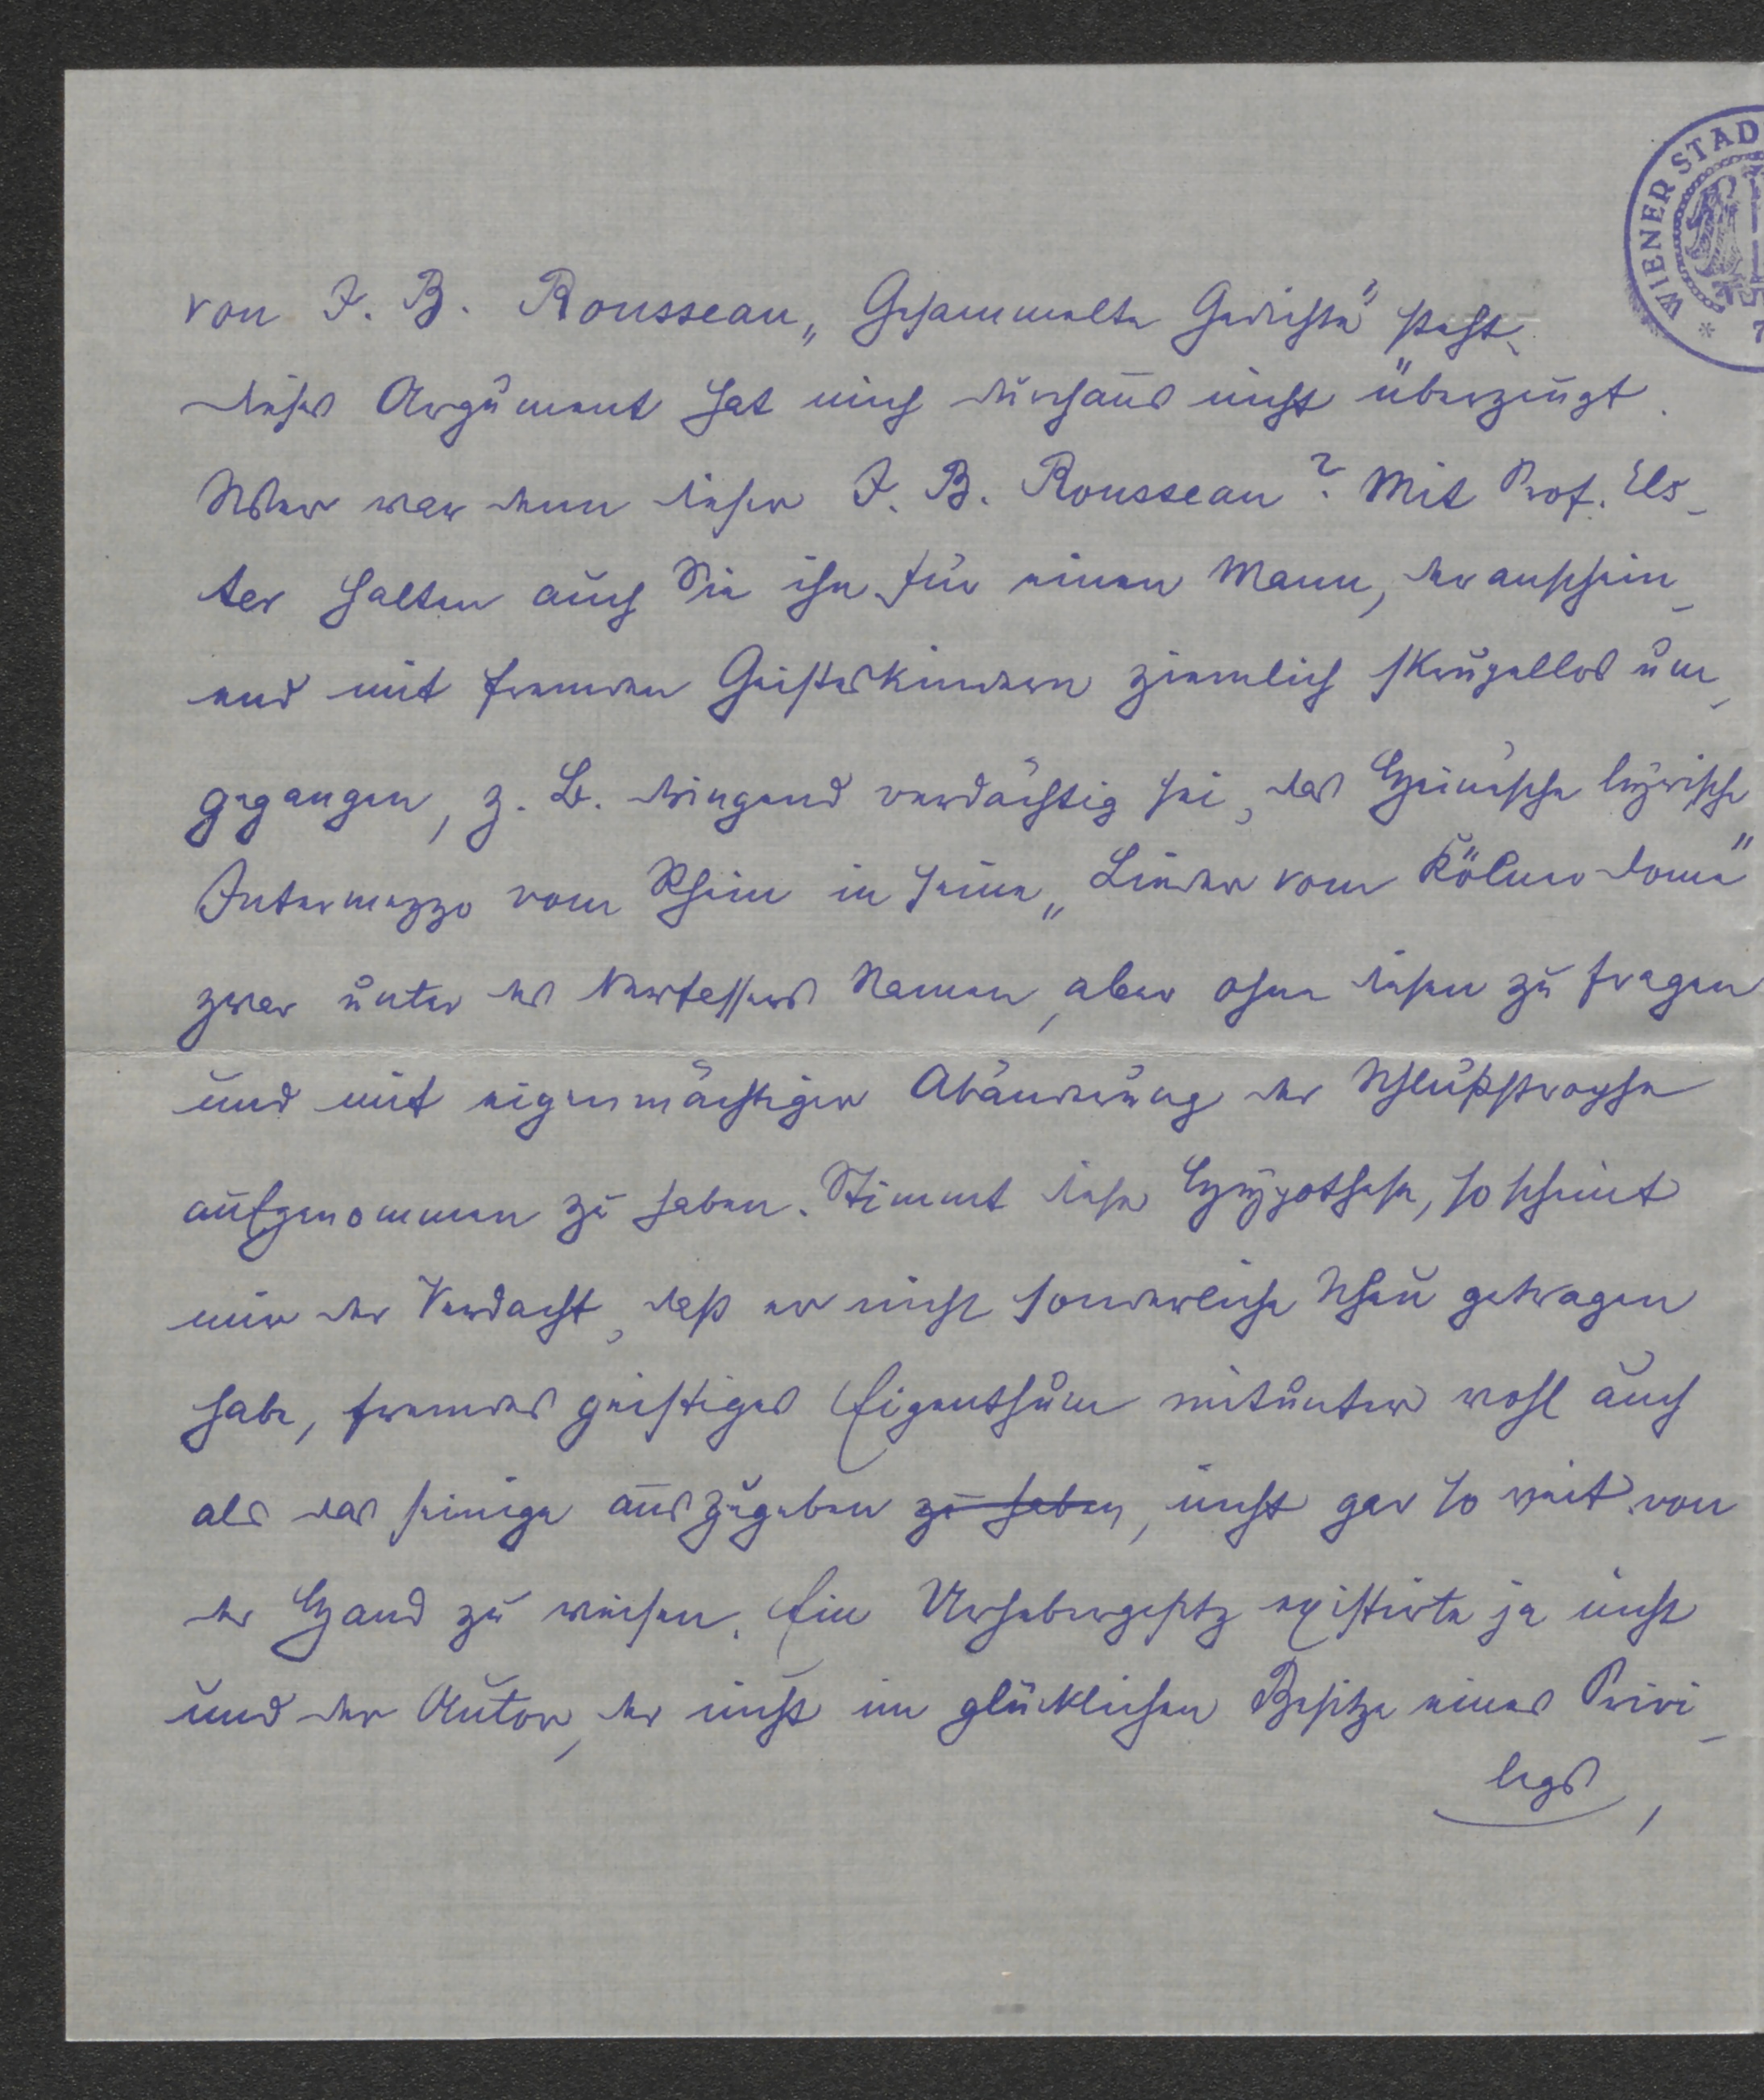 WIENER STAD
von J. B. Rousseau „Gesammelte Gedichte" steht.
dieses Argument hat mich durchaus nicht überzeugt.
Wer war denn dieser J. B. Rousseau? Mit Prof. Els-
ter halten auch Sie ihn für einen Mann, der anschein-
end mit fremden Geisteskindern ziemlich skrupellos um-
gegangen, z. B. dringend verdächtig sei, das Heinesche lyrische
Intermezzo vom Rhein in seine „Lieder vom Kölner Dome"
zwar unter des Verfassers Namen, aber ohne diesen zu fragen
und mit eigenmächtiger Abänderung der Schlußstrophe
aufgenommen zu haben. Stimmt diese Hypothese, so scheint
mir der Verdacht, daß er nicht sonderliche Scheu getragen
habe, fremdes geistiges Eigenthum mitunter wohl auch
als das seinige auszugeben zu haben, nicht gar so weit von
der Hand zu weisen. Ein Urhebergesetz existirte ja nicht
und der Autor, der nicht im glücklichen Besitze eines Privi-
legs,